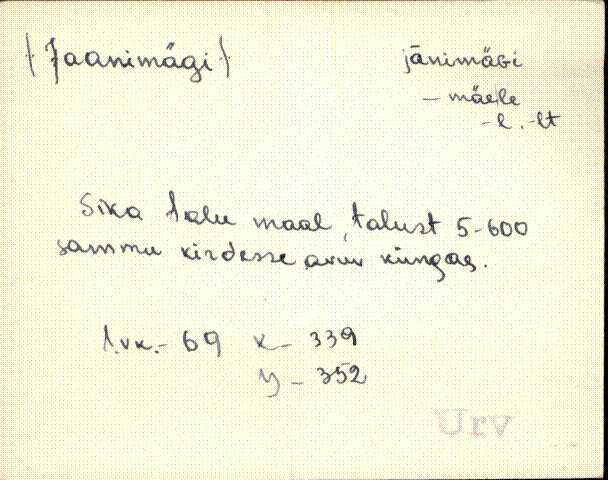 {Jaanimägi}
jānimäGi
- mäele
-l. -lt
Sika talu maal, talust 5-600
sammu kirdesse, küngas.
l.vk.- 69 x - 339
y - 352
Urv